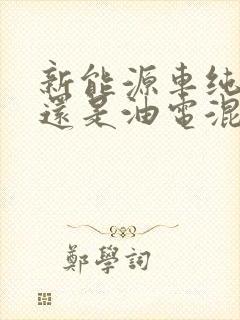 新能源車純
還是油電混
鄭學詞